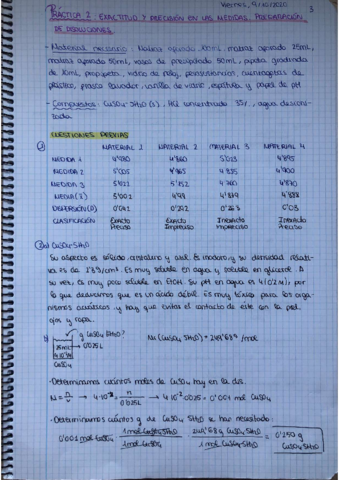 Viernes, 9/10/2020
3
PRÁCTICA 2: EXACTITUD Y PRECISIÓN EN LAS MEDIDAS. PREPARACIÓN
DE DISOLUCIONES
- Material necesario: Matraz aforado 100mL, matraz aforado 25mL,
matraz aforado 50mL, vaso de precipitado 50mL, pipeta graduada
de 10mL, propipeta, vidrio de reloj, cuentagotas de
plástico, frasco lavador, varilla de vidrio, espátula y papel de pH
- Compuestos: CuSO4·5H2O (s), HCl concentrado 35%, agua desioni-
zada.
CUESTIONES PREVIAS
MATERIAL 1 MATERIAL 2 MATERIAL 3 MATERIAL 4
MEDIDA 1 4'980 4'860 5'013 4'895
MEDIDA 2 5'005 4'965 4'835 4'900
MEDIDA 3 5'021 5'152 4'760 4'870
MEDIA (x̄) 5'001 4'99 4'869 4'888
DISPERSIÓN (D) 0'041 0'292 0'253 0'03
CLASIFICACIÓN Exacto Exacto Inexacto Inexacto
Preciso Impreciso Impreciso Preciso
a) CuSO4·5H2O
Su aspecto es sólido cristalino y azul. Es inodoro y su densidad relati-
va es de g/cm3. Es muy soluble en agua y soluble en glicerol. A
su vez, es muy poco soluble en EtOH. Su pH en agua es 4 (0'2 M); por
lo que deducimos que es un ácido débil. Es muy tóxico para los orga-
nismos acuáticos y hay que evitar el contacto de este con la piel,
ojos y ropa.
¿g CuSO4·5H2O?
25mL → 0'025L
CuSO4
Mr (CuSO4·5H2O) = 249'68 g/mol
· Determinamos cuántos moles de CuSO4 hay en la dis.
M = n/V → 4·10-2 = n/0'025L → 4·10-2·0'025 = 0'001 mol CuSO4
· Determinamos cuántos g de CuSO4·5H2O se han necesitado:
0'001 mol CuSO4 · 1 mol CuSO4·5H2O / 1 mol CuSO4 · 249'68 g CuSO4·5H2O / 1 mol CuSO4·5H2O = 0'250 g
CuSO4·5H2O